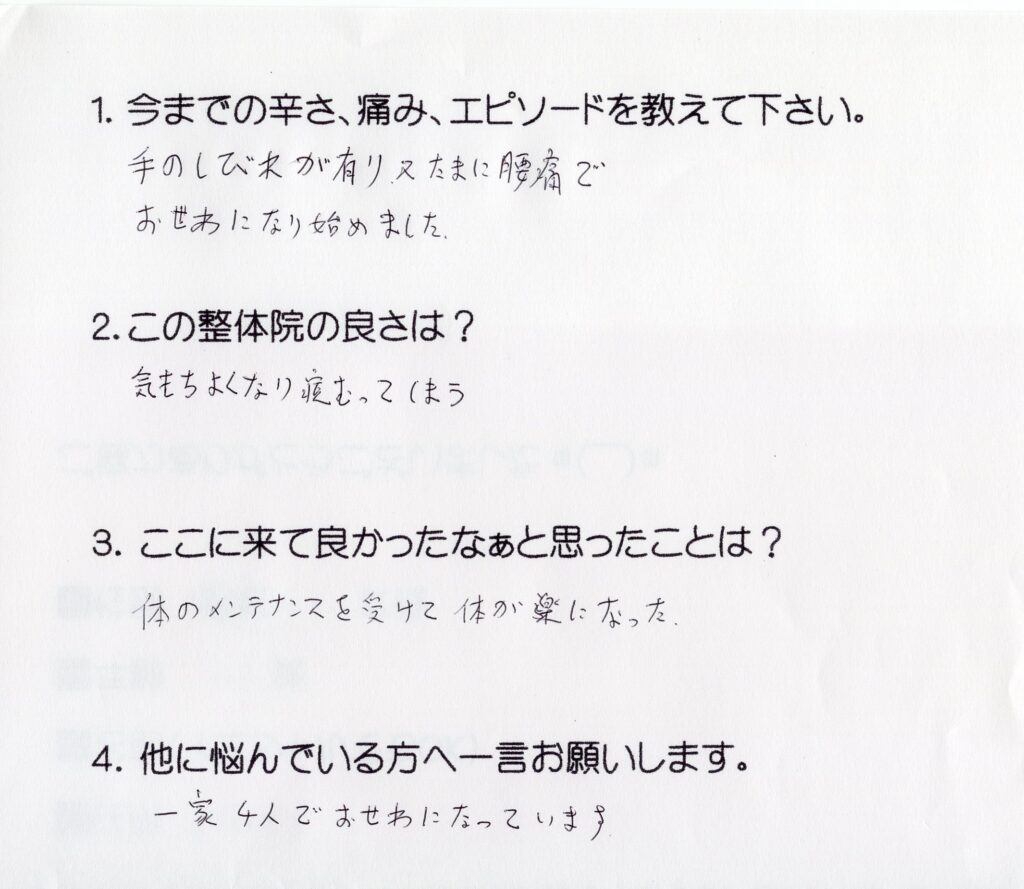 1. 今までの辛さ、痛み、エピソードを教えて下さい。
手のしびれが有り又たまに腰痛で
おせわになり始めました.
2.この整体院の良さは？
気もちよくなり寝むってしまう
3. ここに来て良かったなぁと思ったことは？
体のメンテナンスを受けて体が楽になった.
4. 他に悩んでいる方へ一言お願いします。
一家4人でおせわになっています